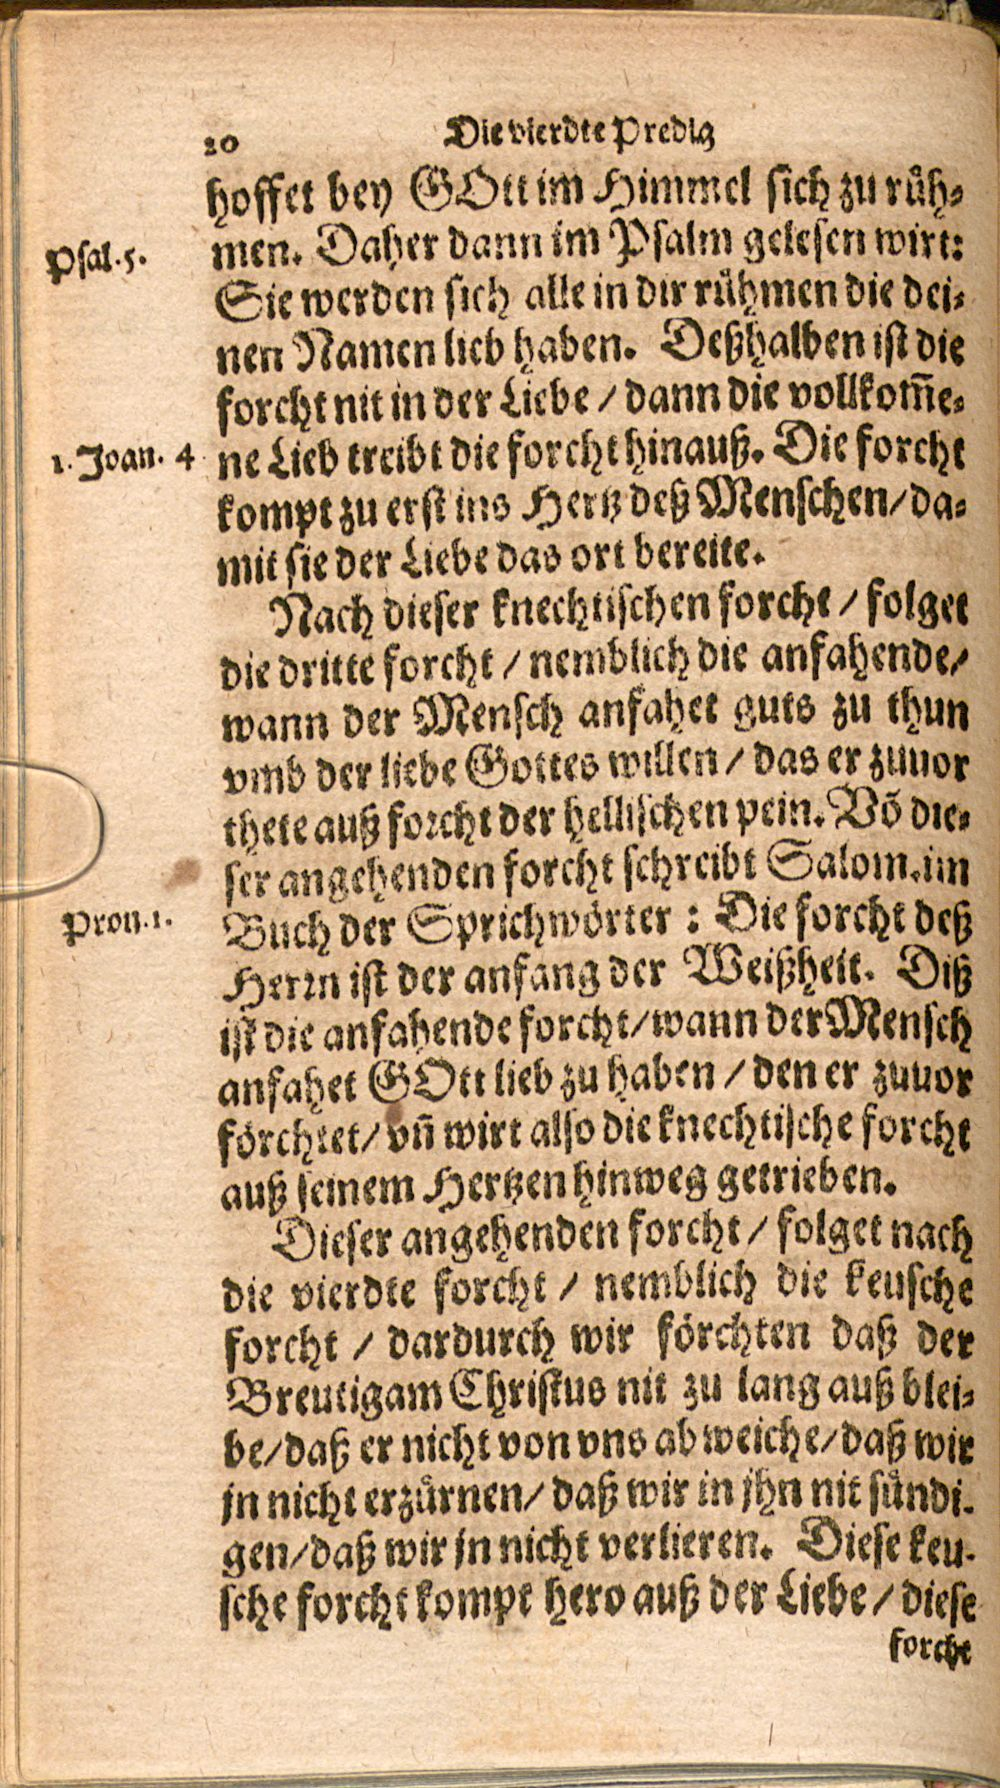 20 Die vierdte Predig
hoffet bey GOtt im Himmel sich zu růh-
men. Daher dann im Psalm gelesen wirt:
Psal. 5.
Sie werden sich alle in dir růhmen die dei-
nen Namen lieb haben. Deßhalben ist die
forcht nit in der Liebe / dann die vollkom̃e-
ne Lieb treibt die forcht hinauß. Die forcht
1. Joan. 4
kompt zu erst ins Hertz deß Menschen / da-
mit sie der Liebe das ort bereite.
Nach dieser knechtischen forcht / folget
die dritte forcht / nemblich die anfahende /
wann der Mensch anfahet guts zu thun
vmb der liebe Gottes willen / das er zuuor
thete auß forcht der hellischen pein. Võ die-
ser angehenden forcht schreibt Salom. im
Buch der Sprichwörter : Die forcht deß
Prou. 1.
Herrn ist der anfang der Weißheit. Diß
ist die anfahende forcht / wann der Mensch
anfahet GOtt lieb zu haben / den er zuuor
förchtet / vñ wirt also die knechtische forcht
auß seinem Hertzen hinweg getrieben.
Dieser angehenden forcht / folget nach
die vierdte forcht / nemblich die keusche
forcht / dardurch wir förchten daß der
Breutigam Christus nit zu lang auß blei-
be / daß er nicht von vns ab weiche / daß wir
jn nicht erzůrnen / daß wir in jhn nit sůndi-
gen / daß wir jn nicht verlieren. Diese keu-
sche forcht kompt hero auß der Liebe / diese
forcht